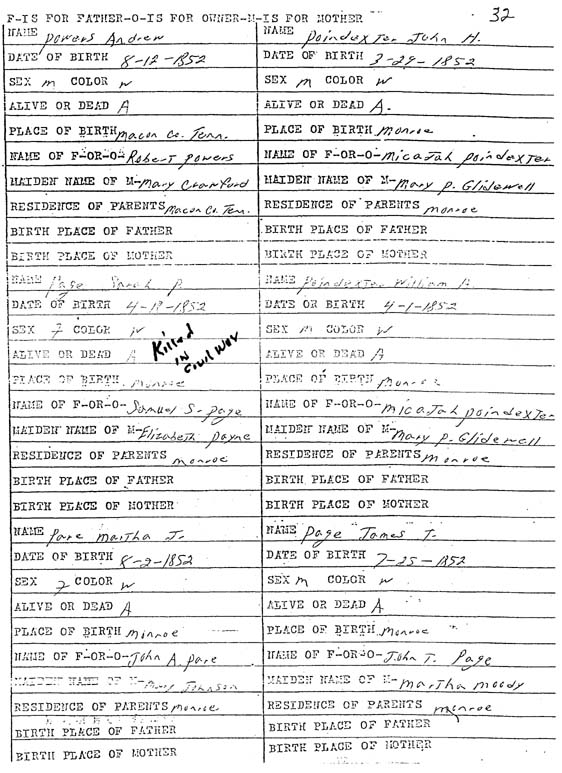 F-IS FOR FATHER-O-IS FOR OWNER-M-IS FOR MOTHER 32
NAME Powers Andrew
DATE OF BIRTH 8-12-1852
SEX m COLOR w
ALIVE OR DEAD A
PLACE OF BIRTH Macon Co. Tenn.
NAME OF F-OR-O- Robert Powers
MAIDEN NAME OF M- Mary Crawford
RESIDENCE OF PARENTS Macon Co. Tenn.
BIRTH PLACE OF FATHER
BIRTH PLACE OF MOTHER
NAME Poindexter John H.
DATE OF BIRTH 3-29-1852
SEX m COLOR w
ALIVE OR DEAD A.
PLACE OF BIRTH Monroe
NAME OF F-OR-O- Micajah Poindexter
MAIDEN NAME OF M- Mary P. Glidewell
RESIDENCE OF PARENTS Monroe
BIRTH PLACE OF FATHER
BIRTH PLACE OF MOTHER
NAME Page Sarah P.
DATE OF BIRTH 4-18-1852
SEX F COLOR W
ALIVE OR DEAD A
Killed
in
Civil War
PLACE OF BIRTH Monroe
NAME OF F-OR-O- Samuel S. Page
MAIDEN NAME OF M- Elizabeth Payne
RESIDENCE OF PARENTS Monroe
BIRTH PLACE OF FATHER
BIRTH PLACE OF MOTHER
NAME Poindexter William
DATE OF BIRTH 4-1-1852
SEX m COLOR w
ALIVE OR DEAD A
PLACE OF BIRTH Monroe
NAME OF F-OR-O- Micajah Poindexter
MAIDEN NAME OF M- Mary P. Glidewell
RESIDENCE OF PARENTS Monroe
BIRTH PLACE OF FATHER
BIRTH PLACE OF MOTHER
NAME Pare Martha J.
DATE OF BIRTH 8-2-1852
SEX F COLOR w
ALIVE OR DEAD A
PLACE OF BIRTH Monroe
NAME OF F-OR-O- John A Pare
MAIDEN NAME OF M- Mary Johnson
RESIDENCE OF PARENTS Monroe
BIRTH PLACE OF FATHER
BIRTH PLACE OF MOTHER
NAME Page James T.
DATE OF BIRTH 7-25-1852
SEX m COLOR w
ALIVE OR DEAD A
PLACE OF BIRTH Monroe
NAME OF F-OR-O- John T. Page
MAIDEN NAME OF M- Martha Moody
RESIDENCE OF PARENTS Monroe
BIRTH PLACE OF FATHER
BIRTH PLACE OF MOTHER